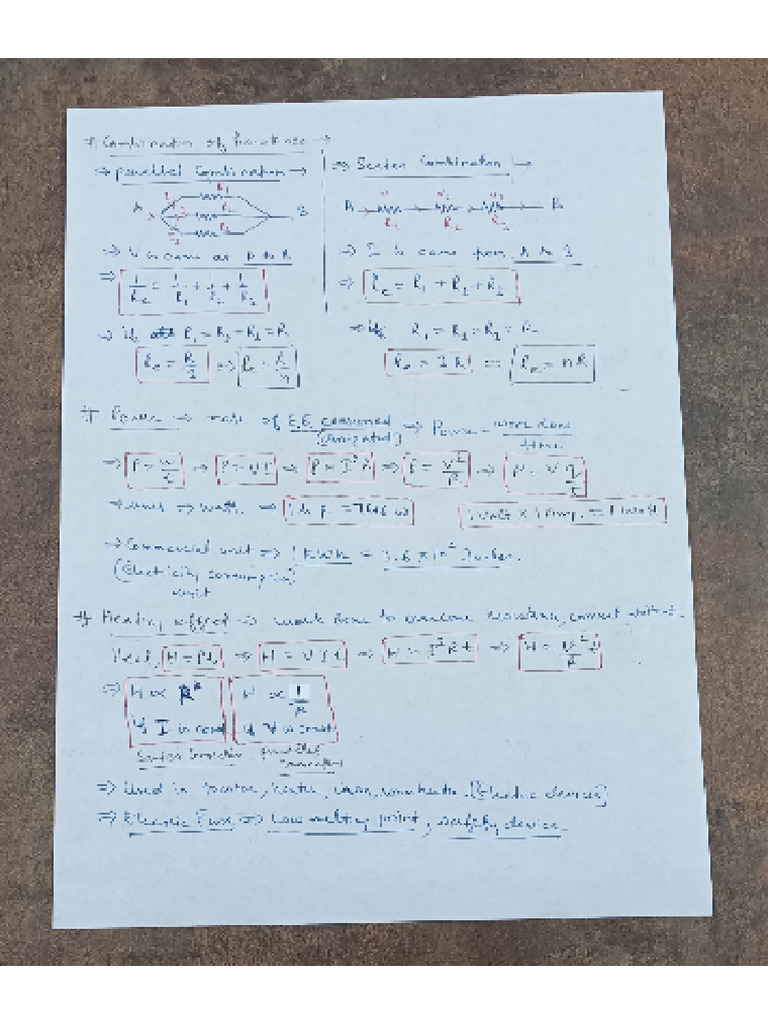 # Combination of Resistance →
⇒ parallel Combination →
A R1 R2 B
⇒ V is same as A to B
⇒ 1/Re = 1/R1 + 1/R2 + 1/R3
⇒ if R1 = R2 = R3 = R
Re = R/3 ⇒ Re = R/n
⇒ Series Combination →
A R1 R2 R3 B
⇒ I is same from A to B
⇒ Re = R1 + R2 + R3
⇒ if R1 = R2 = R3 = R
Re = 3R ⇒ Re = nR
# Power ⇒ rate of E.E consumed ⇒ Power = work done / time
(dissipated)
⇒ P = W/t ⇒ P = VI ⇒ P = I²R ⇒ P = V²/R ⇒ P = V Q/t
⇒ unit → watt. ⇒ 1 h.p. = 746 W 1 Volt × 1 Amp. = 1 Watt
⇒ Commercial unit ⇒ 1 KWh = Joules.
(Electricity consumption)
unit
# Heating effect ⇒ work done to overcome resistance, current
Heat, H = Pt ⇒ H = VIt ⇒ H = I²Rt ⇒ H = V²t/R
⇒ H ∝ R H ∝ 1/R
if I is const if V is const
Series Connection parallel
Connection
⇒ Used in heater, iron, [Electric devices]
⇒ Electric Fuse ⇒ Low melting point, safety device.